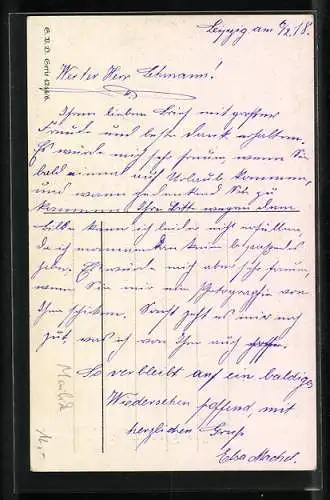 Leipzig am 6/2 18.
Werter Herr Lehmann!
Ihren lieben Brief mit großer
Freude und beste Dank erhalten.
Es würde mich sehr freuen, wenn Sie
bald einmal auf Urlaub kommen,
und wann gedenken Sie zu
kommen. Ihre Bitte wegen dem
Bilde kann ich leider nicht erfüllen,
da ich momentan kein
habe. Es würde mich aber sehr freuen,
wenn Sie mir eine Photographie von
Ihn schicken. Sonst geht es mir noch
gut, was ich von Ihn auch hoffe.
So verbleibt auf ein baldiges
Wiedersehen hoffend, mit
herzlichen Gruß
Elsa Machel.